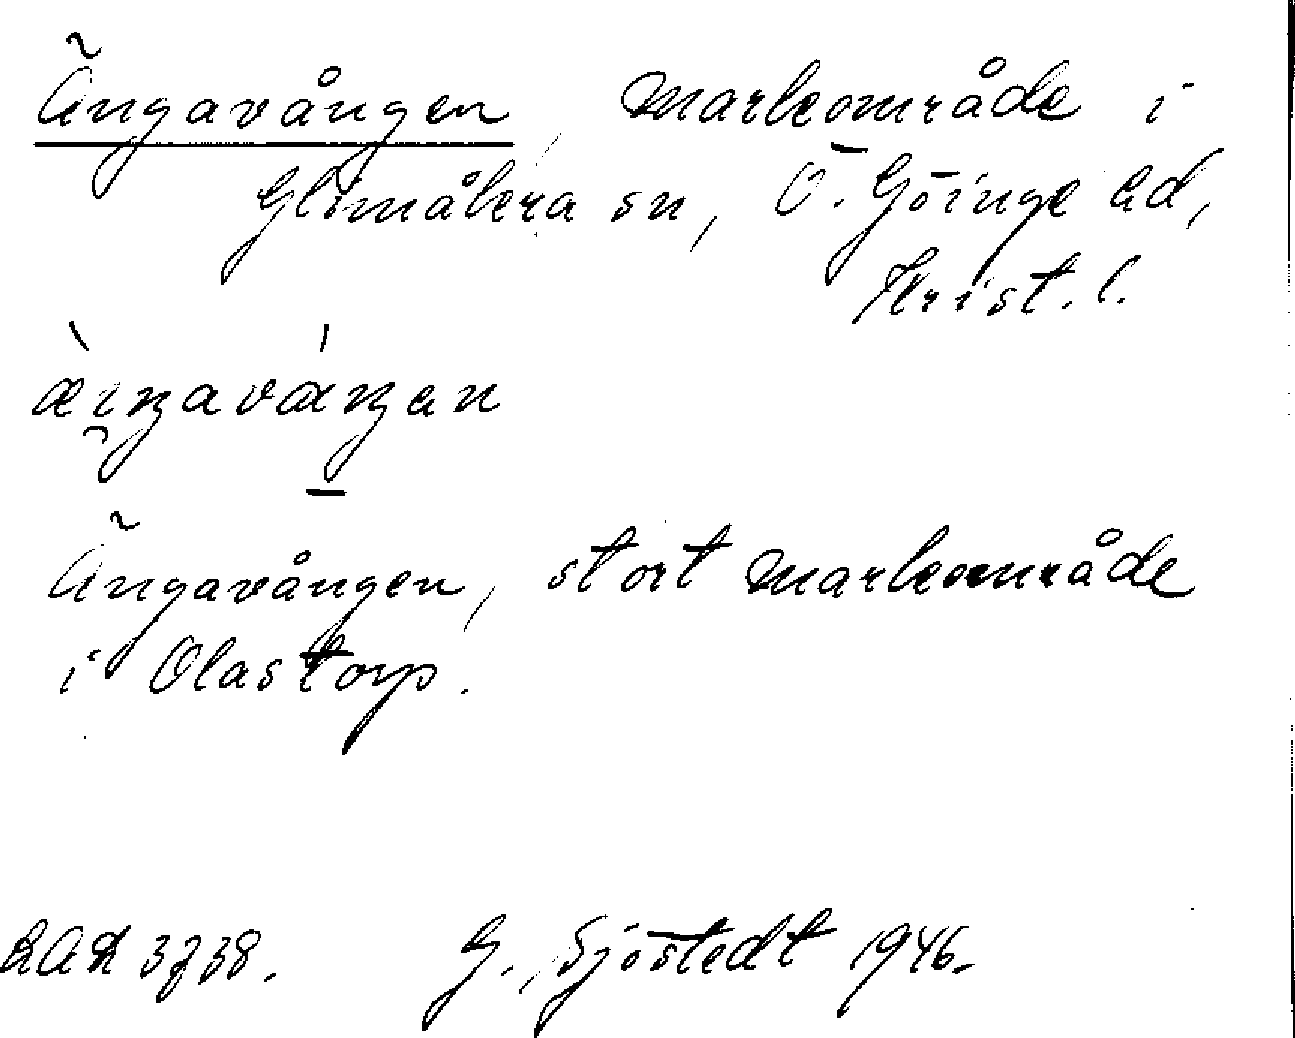 Ängavången, markområde i
Glimåkra sn, Ö. Göinge hd,
Krist. l.
æ̀i̯ŋavɑ́ŋan
Ängavången, stort markområde
i Olastorp.
3738. G. Sjöstedt 1946.